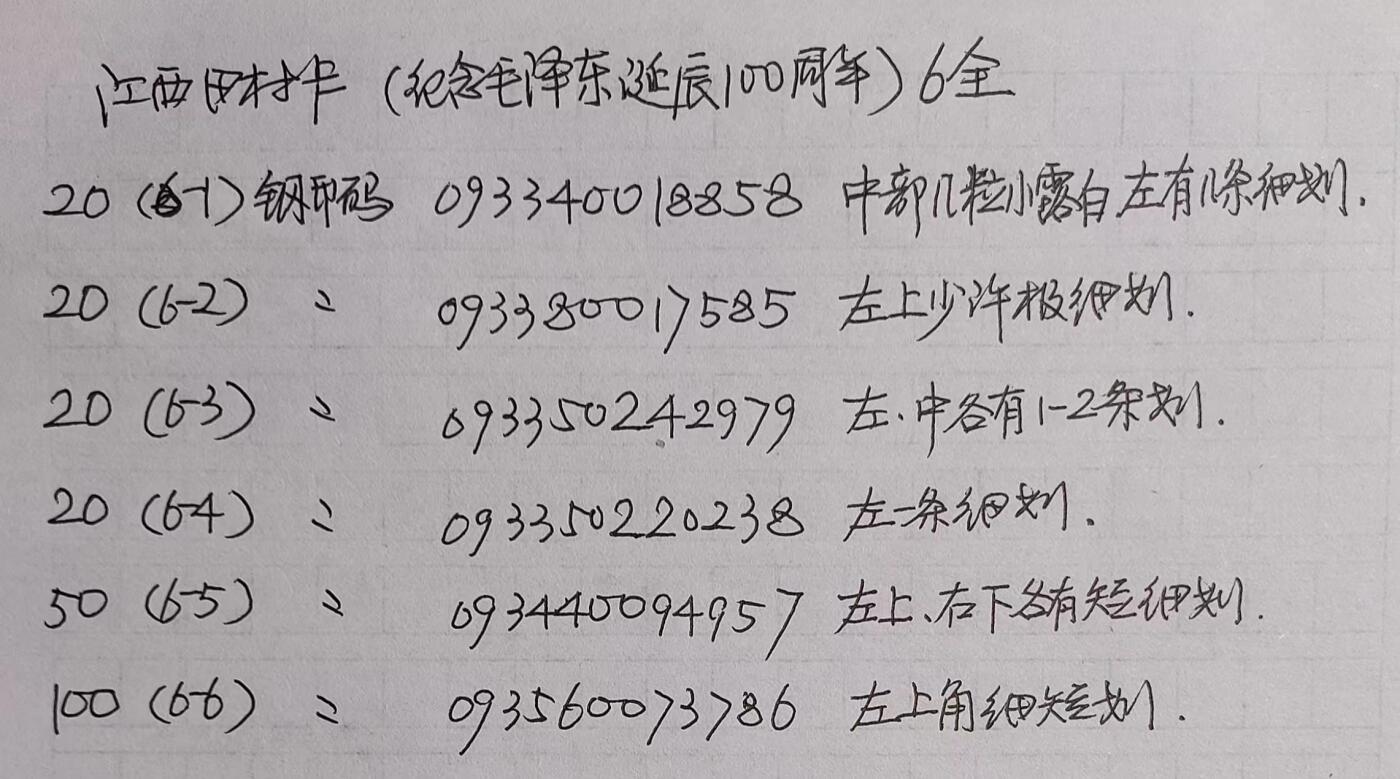 江西田村卡（纪念毛泽东诞辰100周年）6全
20（6-1）钢印码 093340018858 中部几粒小露白左有几条细划.
20（6-2） 〃 093380017585 左上少许极细划.
20（6-3） 〃 093350242979 左.中各有1-2条划.
20（6-4） 〃 093350220238 左一条细划.
50（6-5） 〃 093440094957 左上、右下各有短细划.
100（6-6） 〃 093560073786 左上角细短划.